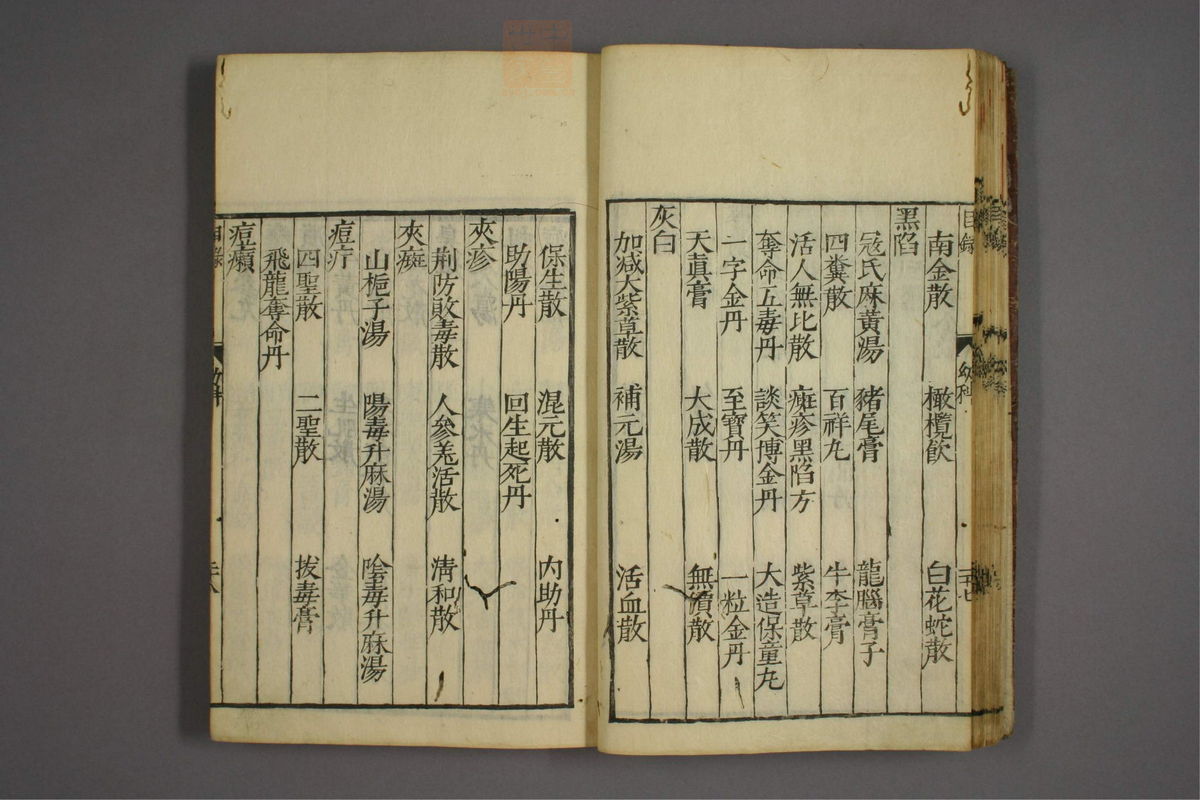 目錄 幼科 二十七
南金散 橄欖飲 白花蛇散
黑陷
冦氏麻黃湯 豬尾膏 龍腦膏子
四糞散 百祥丸 牛李膏
活人無比散 瘢疹黑陷方 紫草散
奪命五毒丹 談笑博金丹 大造保童丸
一字金丹 至寶丹 一粒金丹
天真膏 大成散 無價散
灰白
加减大紫草散 補元湯 活血散
保生散 混元散 內助丹
助陽丹 回生起死丹
夾疹
荆防敗毒散 人參羗活散 淸和散
夾癍
山梔子湯 陽毒升麻湯 陰毒升麻湯
痘疔
四聖散 二聖散 拔毒膏
飛龍奪命丹
痘癩
目錄 幼科